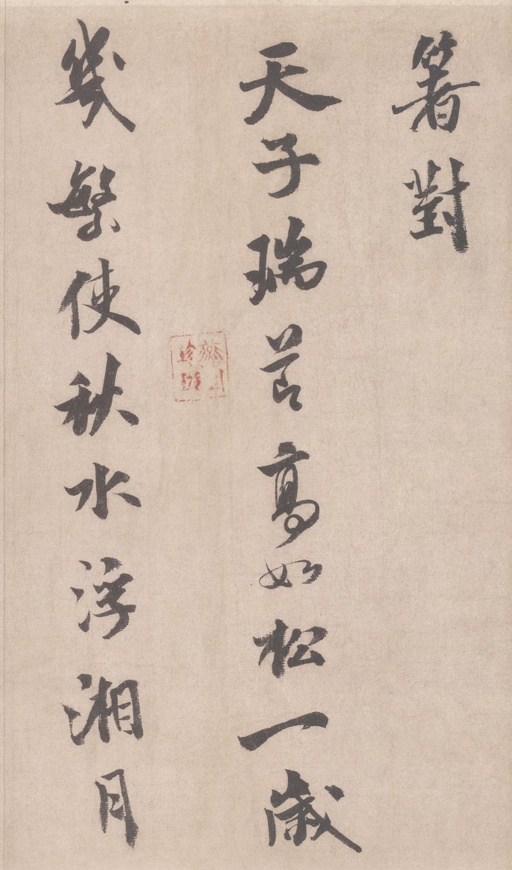 箸對
天子瑞節高如松一歲
幾繁使秋水浮湘月